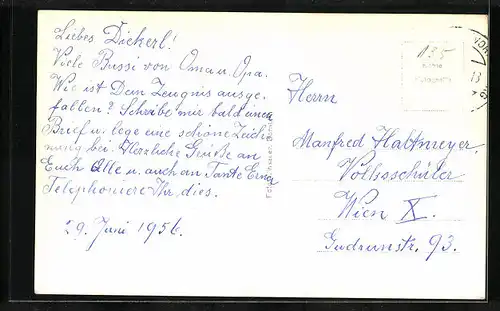 Liebes Dickerl!
Viele Bussi von Oma u. Opa.
Wie ist Dein Zeugnis ausge-
fallen? Schreibe mir bald einen
Brief u. lege eine schöne Zeich-
nung bei. Herzliche Grüße an
Euch Alle u. auch an Tante Erna
Telephoniere Ihr dies.
29. Juni 1956.
135
Herrn
Manfred
Volksschüler
Wien X.
Gudrunstr. 93.